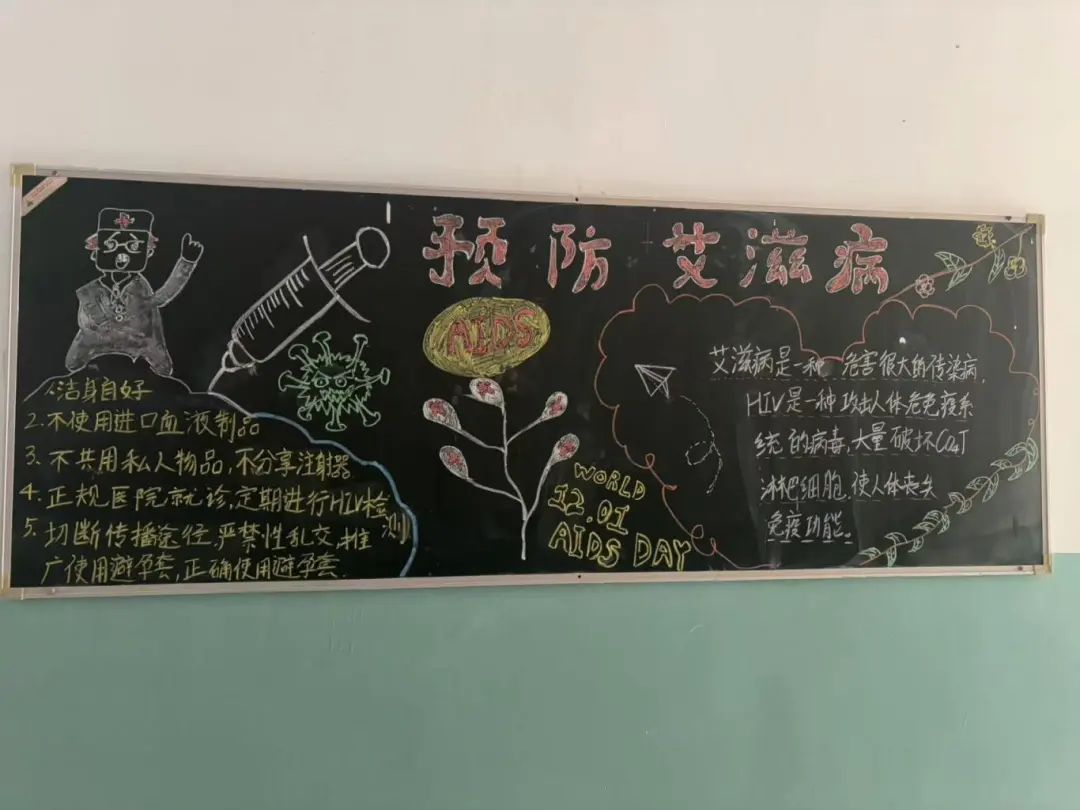 预防艾滋病
AIDS
1.洁身自好
2.不使用进口血液制品
3.不共用私人物品,不分享注射器
4.正规医院就诊,定期进行HIV检测
5.切断传播途径,严禁性乱交,推
广使用避孕套,正确使用避孕套.
WORLD
12.01
AIDS DAY
艾滋病是一种 危害很大的传染病,
HIV是一种攻击人体免疫系
统的病毒,大量破坏CD4T
淋巴细胞,使人体丧失
免疫功能。